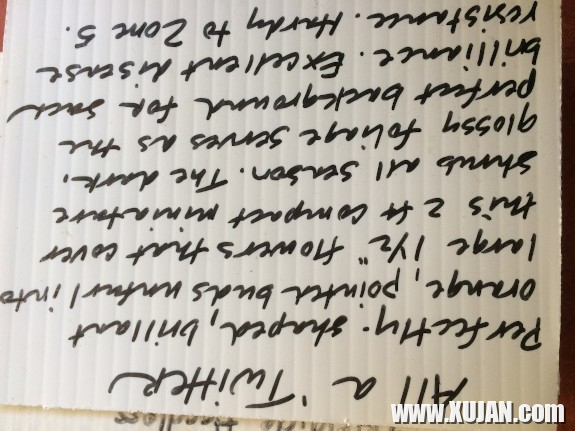 All a 'Twitter
Perfectly-shaped, brillant
orange, pointed buds unfurl into
large 1½" flowers that cover
this 2 ft compact miniature
shrub all season. The dark,
glossy foliage serves as the
perfect background for such
brilliance. Excellent disease
resistance. Hardy to Zone 5.
www.XUJAN.com